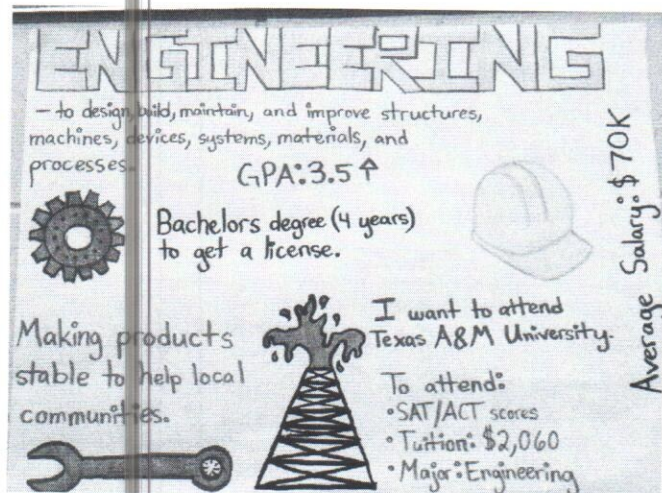 ENGINEERING
– to design, build, maintain, and improve structures,
machines, devices, systems, materials, and
processes.
GPA: 3.5 ↑
Bachelors degree (4 years)
to get a license.
Average Salary: $70K
Making products
stable to help local
communities.
I want to attend
Texas A&M University.
To attend:
• SAT/ACT scores
• Tuition: $2,060
• Major: Engineering